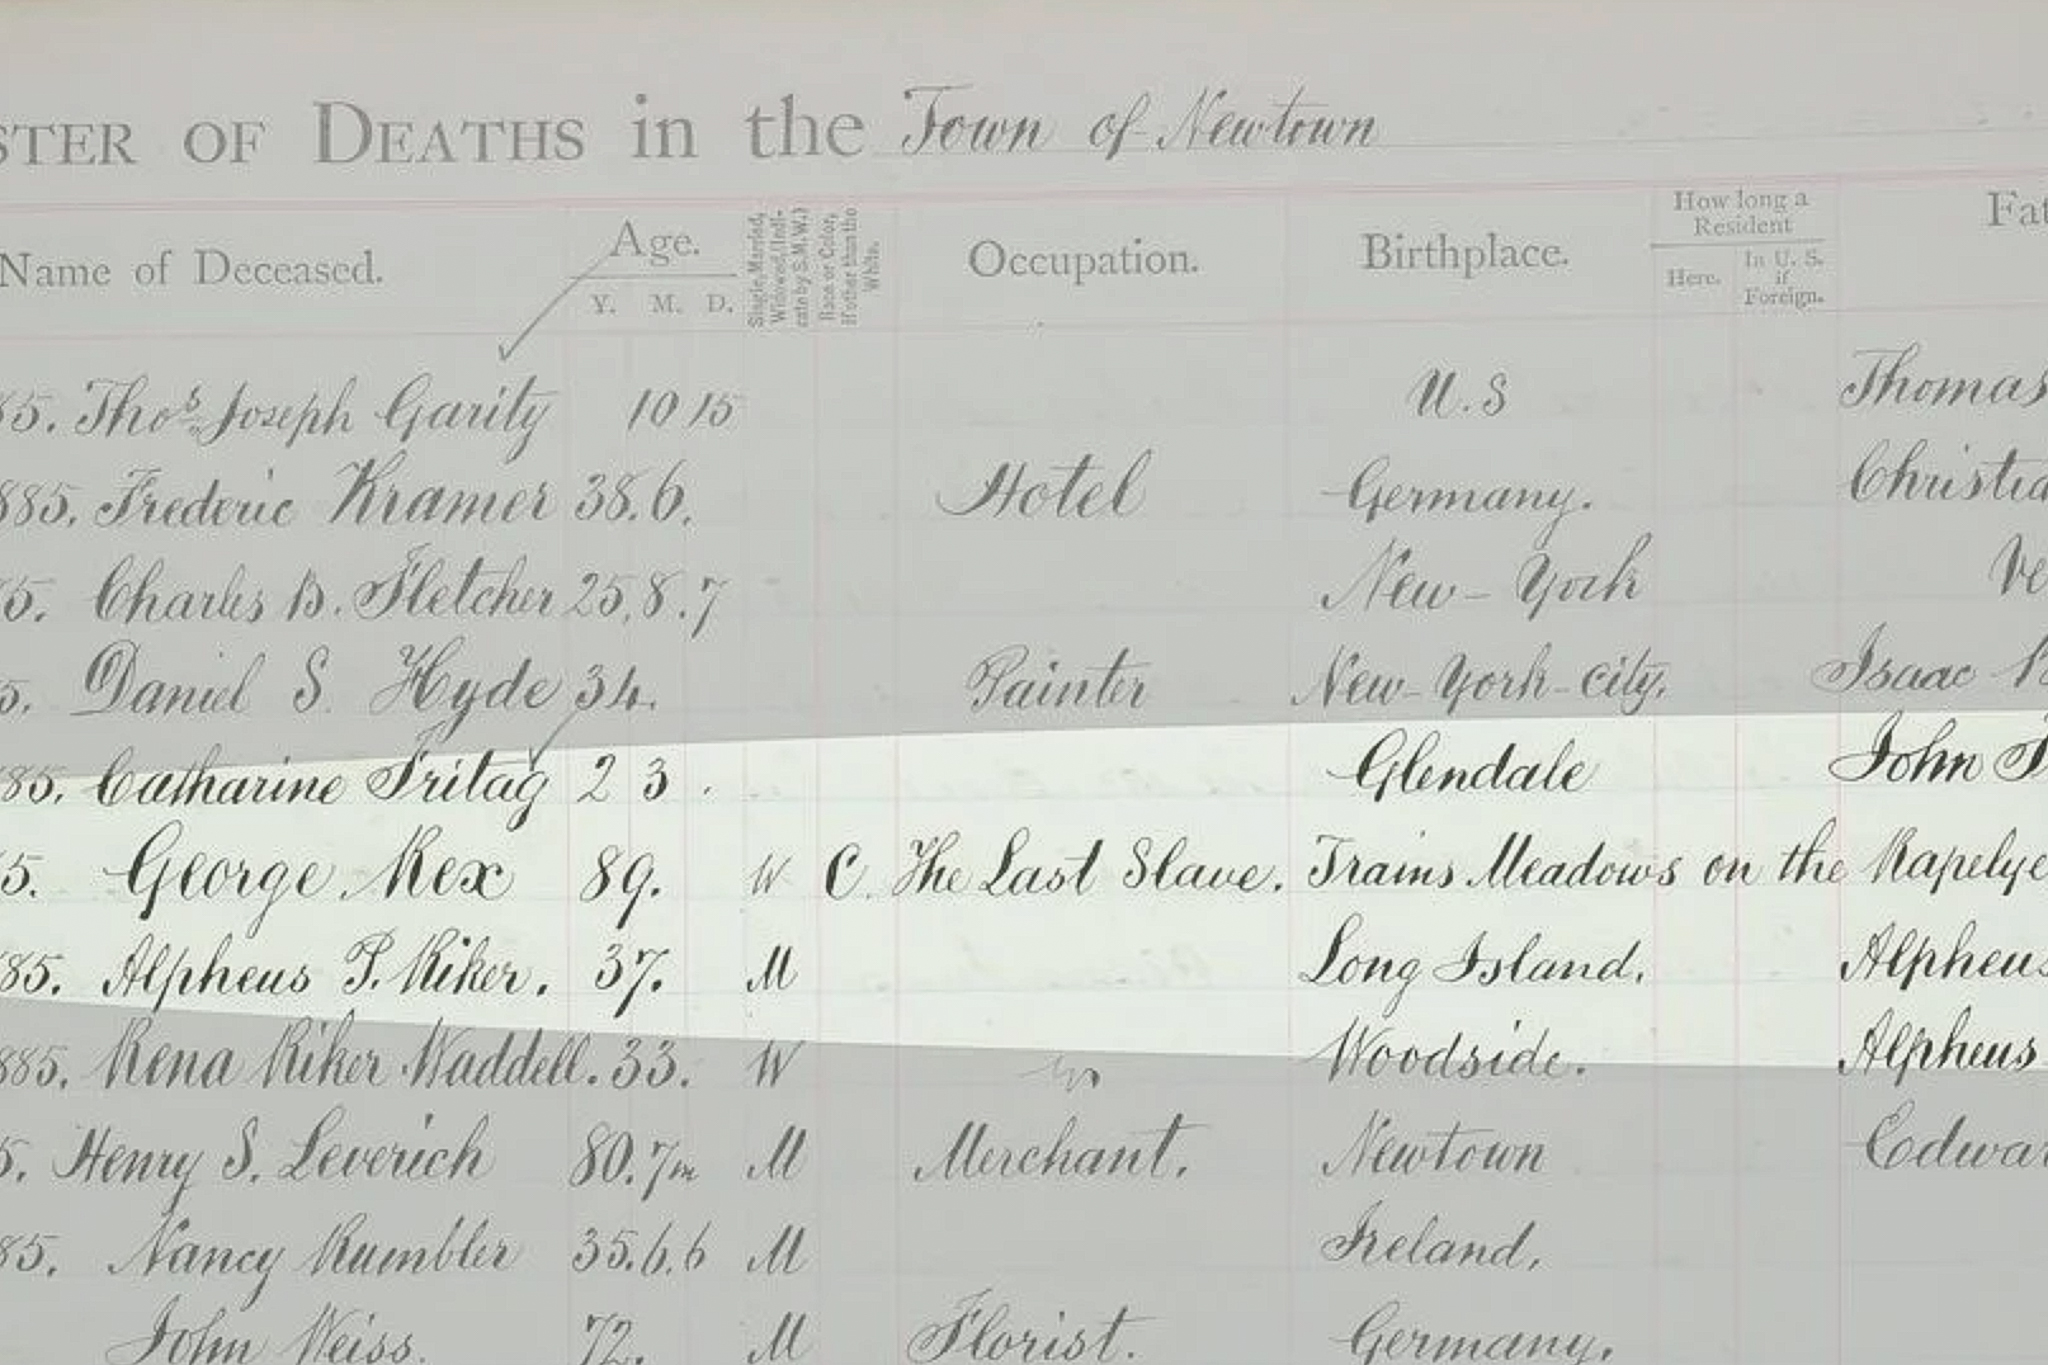 STER OF DEATHS in the Town of Newtown
Name of Deceased.
Age.
Y. M. D.
Single, Married, Widowed, (Indicate by S.M.W.)
Race or Color, if other than the White.
Occupation.
Birthplace.
How long a Resident
Here.
In U. S. if Foreign.
Fat
85. Thos. Joseph Garity 10 15 U.S Thomas
885. Frederic Kramer 38.6. Hotel Germany. Christia
5. Charles B. Fletcher 25,8.7 New-York Ve
5. Daniel S. Hyde 34. Painter New-York-City. Isaac
85. Catharine Fritag 2 3. Glendale John F
5. George Rex 89. W C. The Last Slave. Trains Meadows on the Rapelye
85. Alpheus P. Riker. 37. M Long Island. Alpheus
885. Rena Riker Waddell. 33. W Woodside. Alpheus
5. Henry S. Leverich 80.7m M Merchant. Newtown Edwar
85. Nancy Rumbler 35.6.6 M Ireland.
John Weiss. 72. M Florist. Germany.